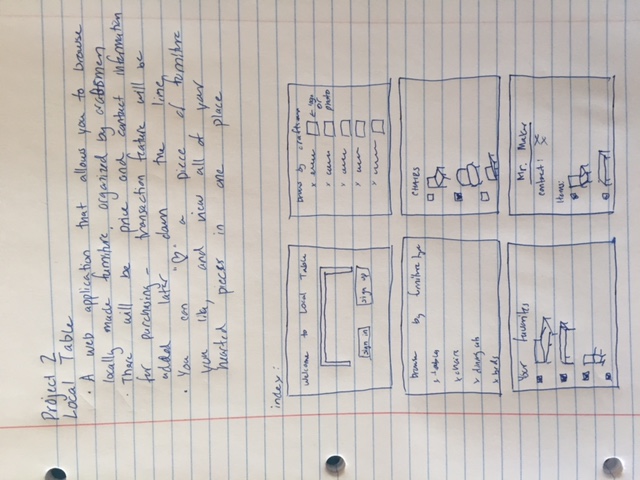 Project 2
Local Table
• A web application that allows you to browse
locally made furniture, organized by craftsmen
• There will be price and contact information
for purchasing - transaction feature will be
added later down the line
• You can "♡" a piece of furniture
you like, and view all of your
hearted pieces in one place
index:
Welcome to Local Table
sign in
sign up
by craftsman
← logo
or
photo
browse by furniture type
x tables
x chairs
x beds
CHAIRS
Your favorites
Mr. Maker
contact:
Items: